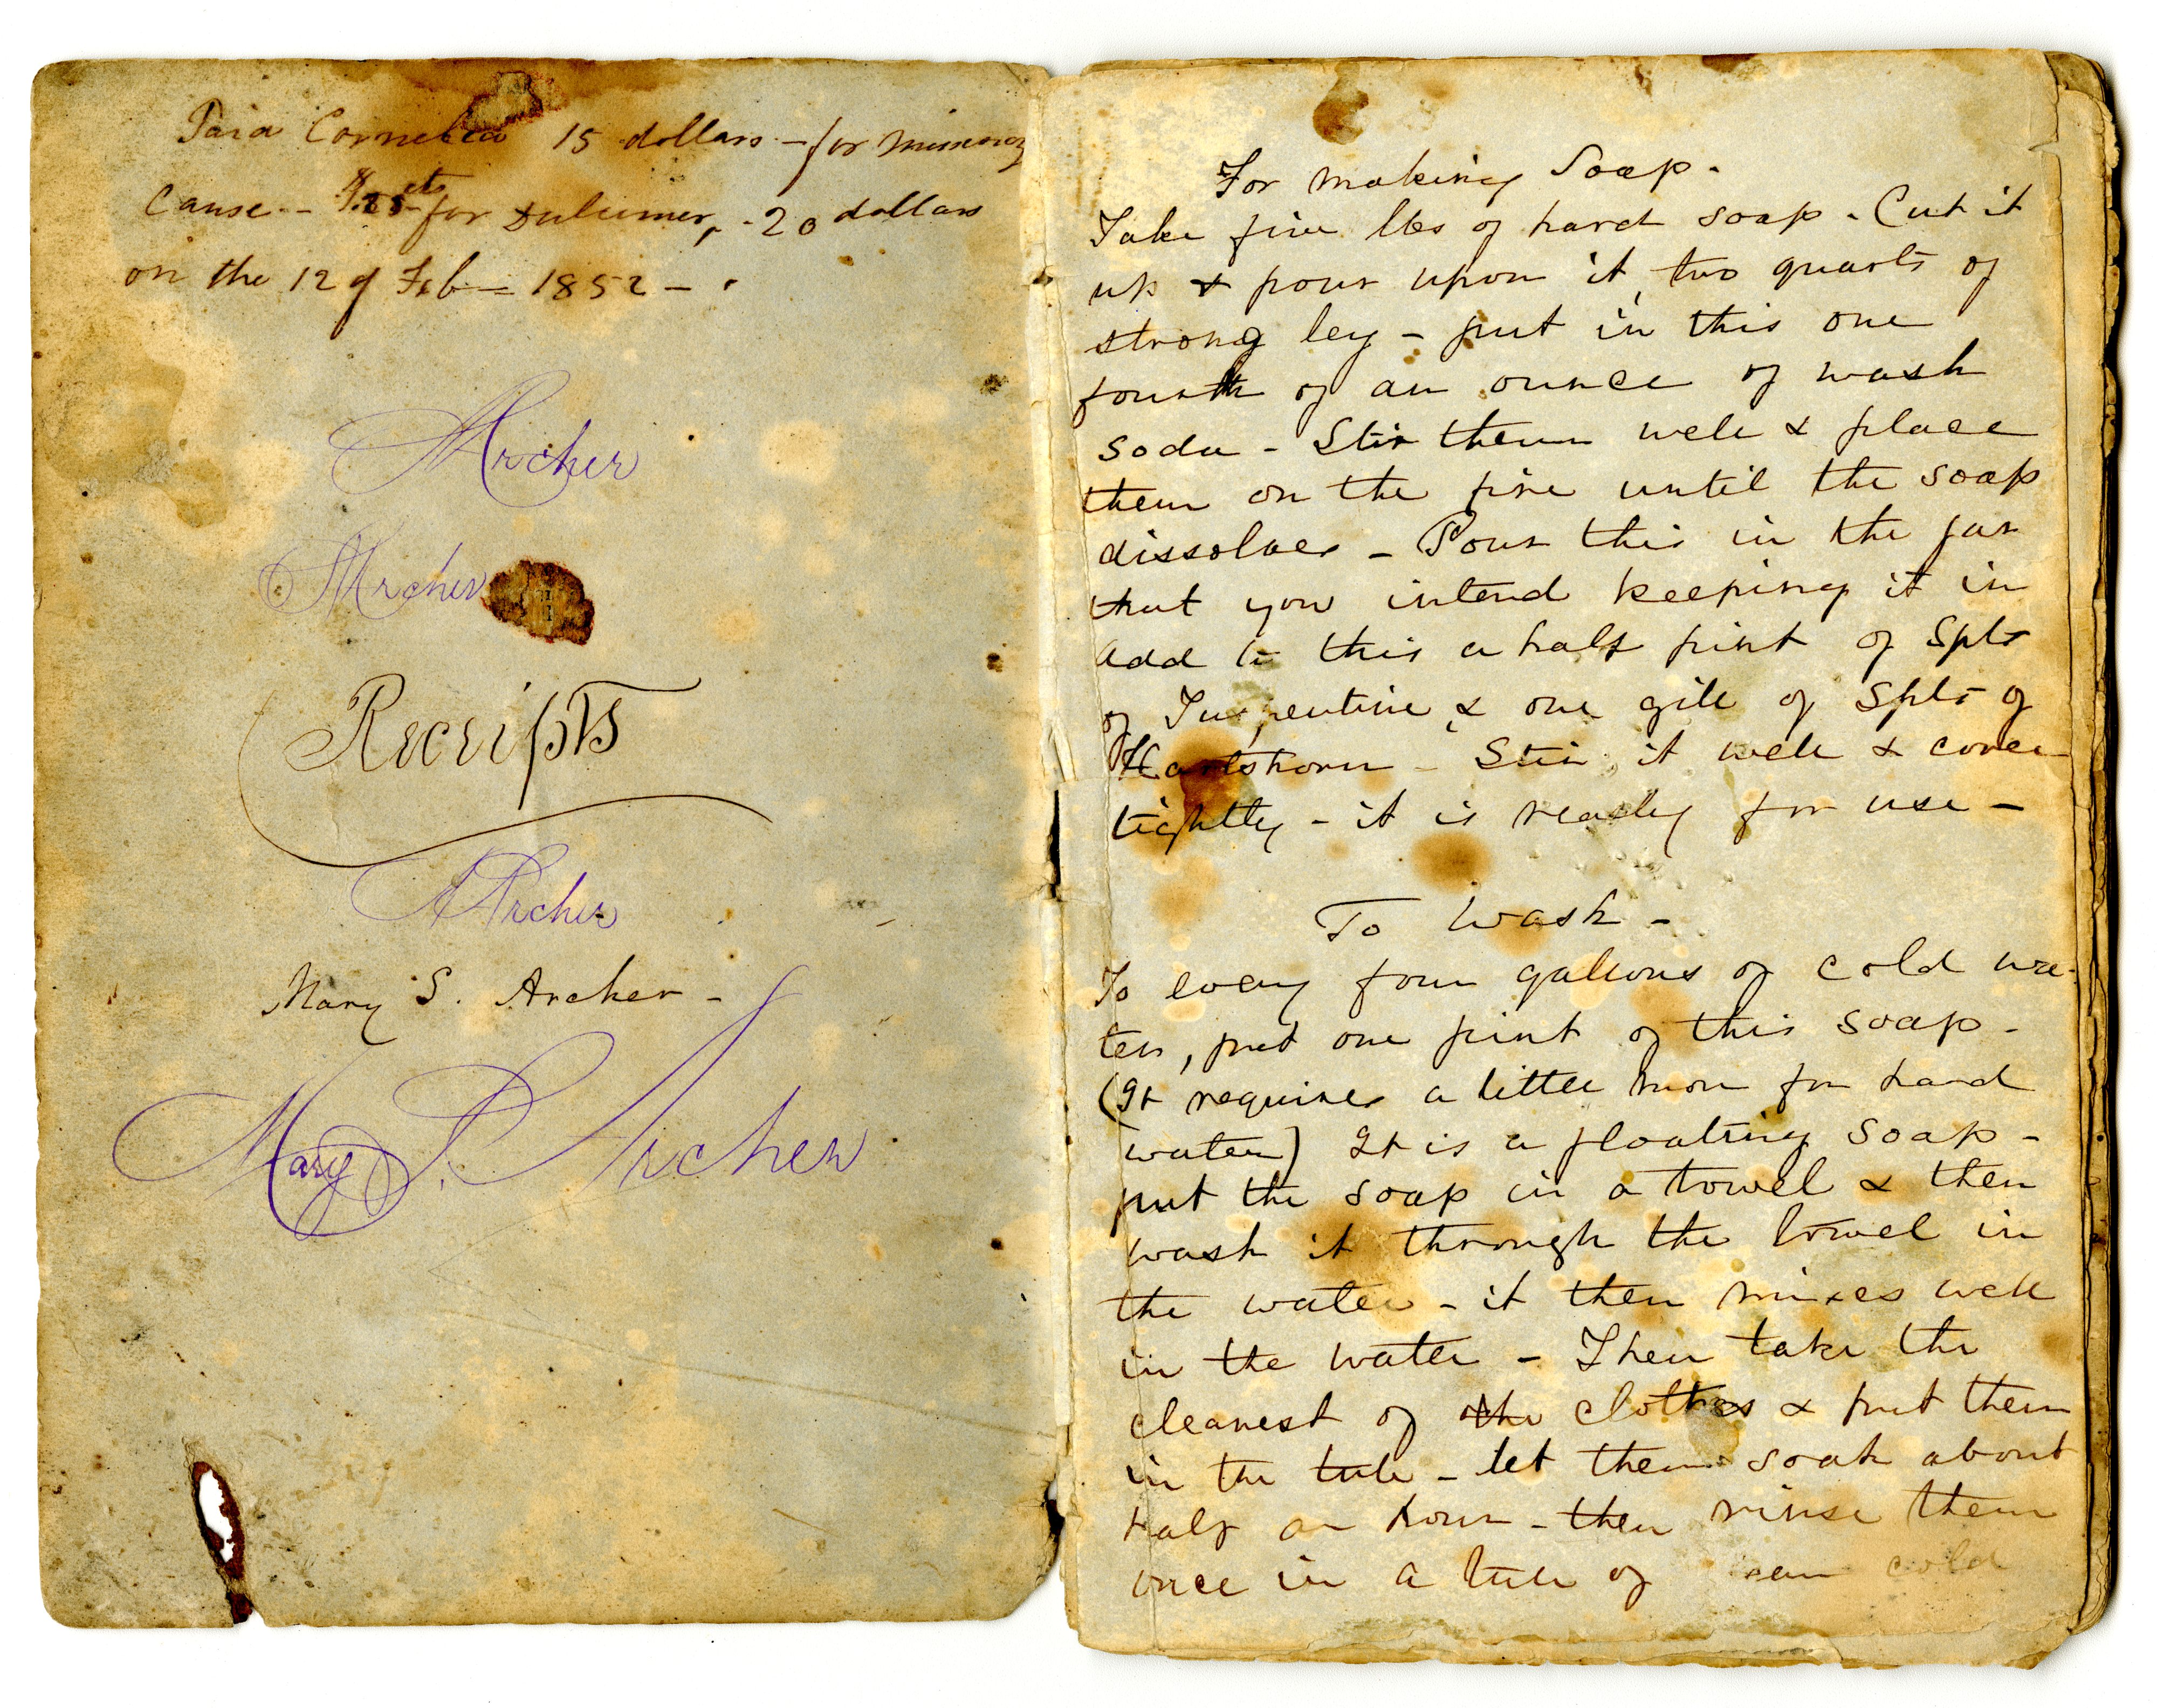 Paid Cornelia 15 dollars - for missionary
Cause - for 20 dollars
on the 12 of Feb - 1852 - .
Archer
Archer
Receipts
A Archer
Mary S. Archer -
Mary S. Archer
For making Soap.
Take five lbs of hard soap. Cut it
up & pour upon it two quarts of
strong ley - put in this one
fourth of an ounce of wash
soda - Stir them well & place
them on the fire until the soap
dissolves - Pour this in the jar
that you intend keeping it in
add to this a half pint of Spts
of Turpentine & one gill of Spts of
Hartshorn - Stir it well & cover
tightly - it is ready for use -
To Wash -
To every four gallons of cold wa-
ter, put one pint of this soap -
(It requires a little more for hard
water) It is a floating soap -
put the soap in a towel & then
wash it through the towel in
the water - it then mixes well
in the water - Then take the
cleanest of the clothes & put them
in the tub - let them soak about
half an hour - then rinse them
once in a tub of clean cold